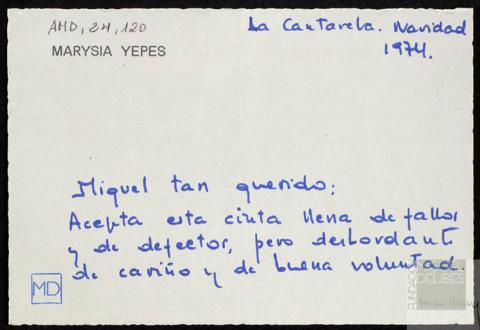 AMD, 24, 120
MARYSIA YEPES
La Cantarela. Navidad
1974.
Miguel tan querido:
Acepta esta cinta llena de fallos
y de defectos, pero desbordante
de cariño y de buena voluntad.
MD
FUNDACIÓN
DELIBES